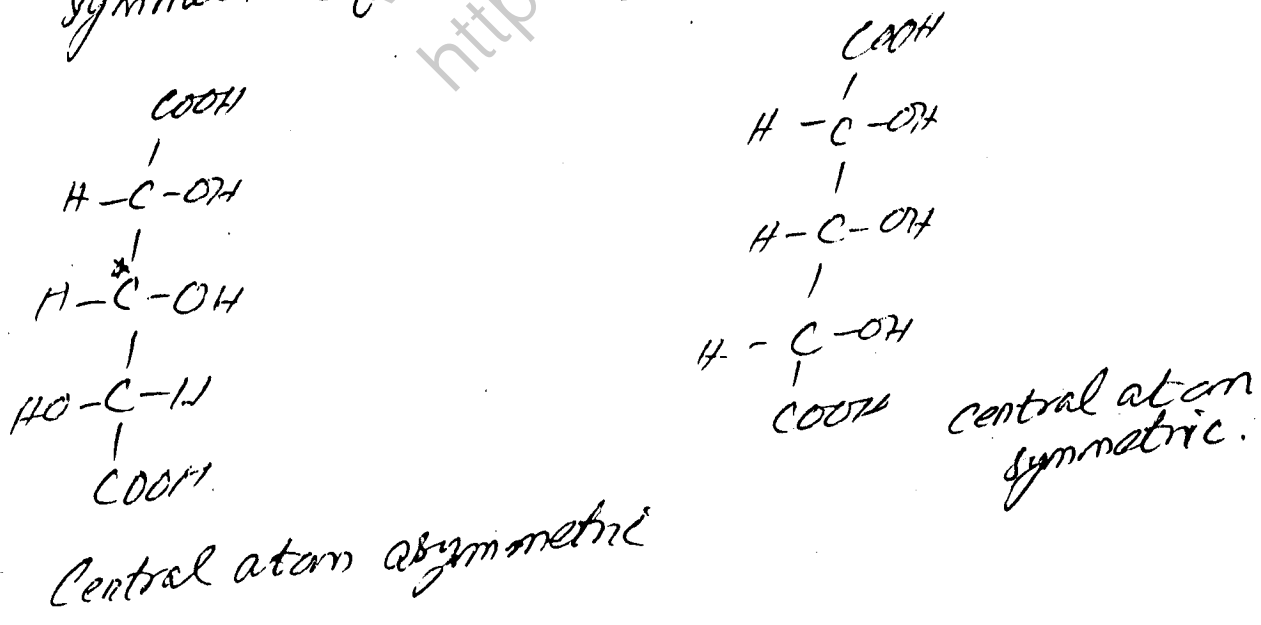 symme
http
COOH
H – C – OH
H – C* – OH
HO – C – H
COOH
Central atom asymmetric
COOH
H – C – OH
H – C – OH
H – C – OH
COOH
central atom
symmetric.